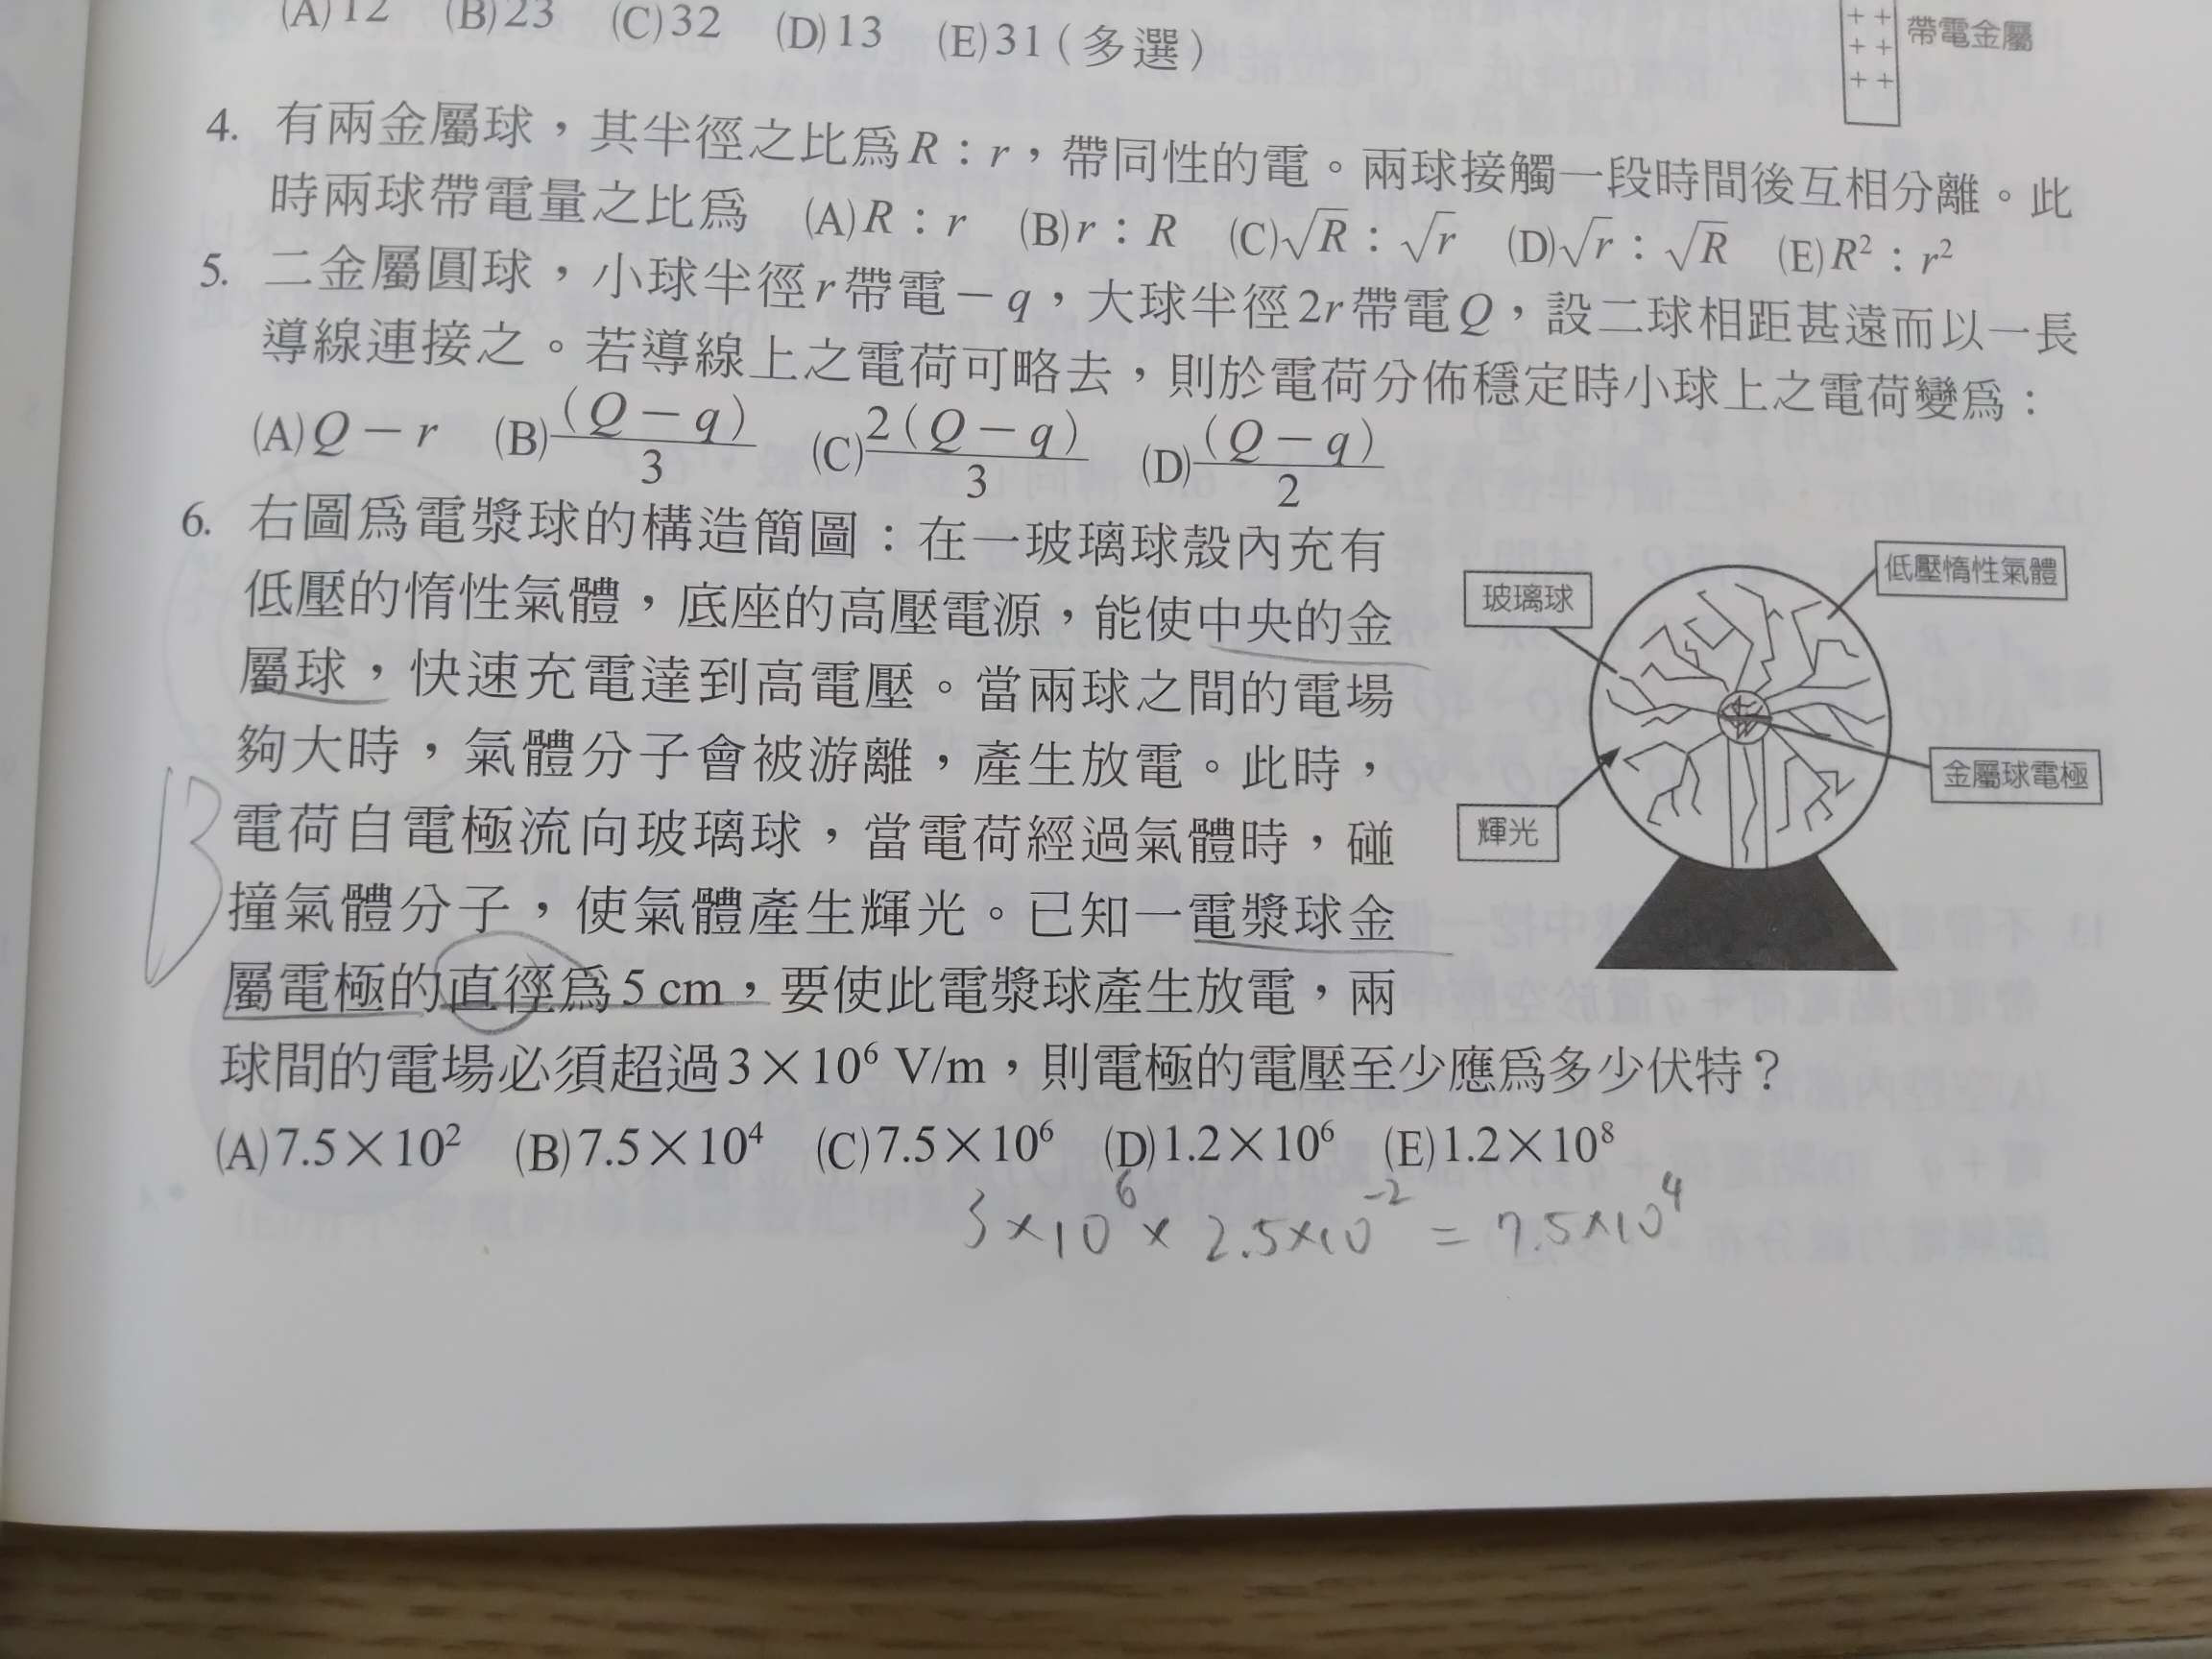 (A)12 (B)23 (C)32 (D)13 (E)31(多選)
++
++
++
帶電金屬
4. 有兩金屬球，其半徑之比爲R：r，帶同性的電。兩球接觸一段時間後互相分離。此
時兩球帶電量之比爲 (A)R：r (B)r：R (C)√R：√r (D)√r：√R (E)R²：r²
5. 二金屬圓球，小球半徑r帶電－q，大球半徑2r帶電Q，設二球相距甚遠而以一長
導線連接之。若導線上之電荷可略去，則於電荷分佈穩定時小球上之電荷變爲：
(A)Q－r (B)(Q－q)/3 (C)2(Q－q)/3 (D)(Q－q)/2
6. 右圖爲電漿球的構造簡圖：在一玻璃球殼內充有
低壓的惰性氣體，底座的高壓電源，能使中央的金
屬球，快速充電達到高電壓。當兩球之間的電場
夠大時，氣體分子會被游離，產生放電。此時，
電荷自電極流向玻璃球，當電荷經過氣體時，碰
撞氣體分子，使氣體產生輝光。已知一電漿球金
屬電極的直徑爲5 cm，要使此電漿球產生放電，兩
球間的電場必須超過3×10⁶ V/m，則電極的電壓至少應爲多少伏特？
(A)7.5×10² (B)7.5×10⁴ (C)7.5×10⁶ (D)1.2×10⁶ (E)1.2×10⁸
玻璃球
低壓惰性氣體
金屬球電極
輝光
B
3×10⁶×2.5×10⁻²=7.5×10⁴